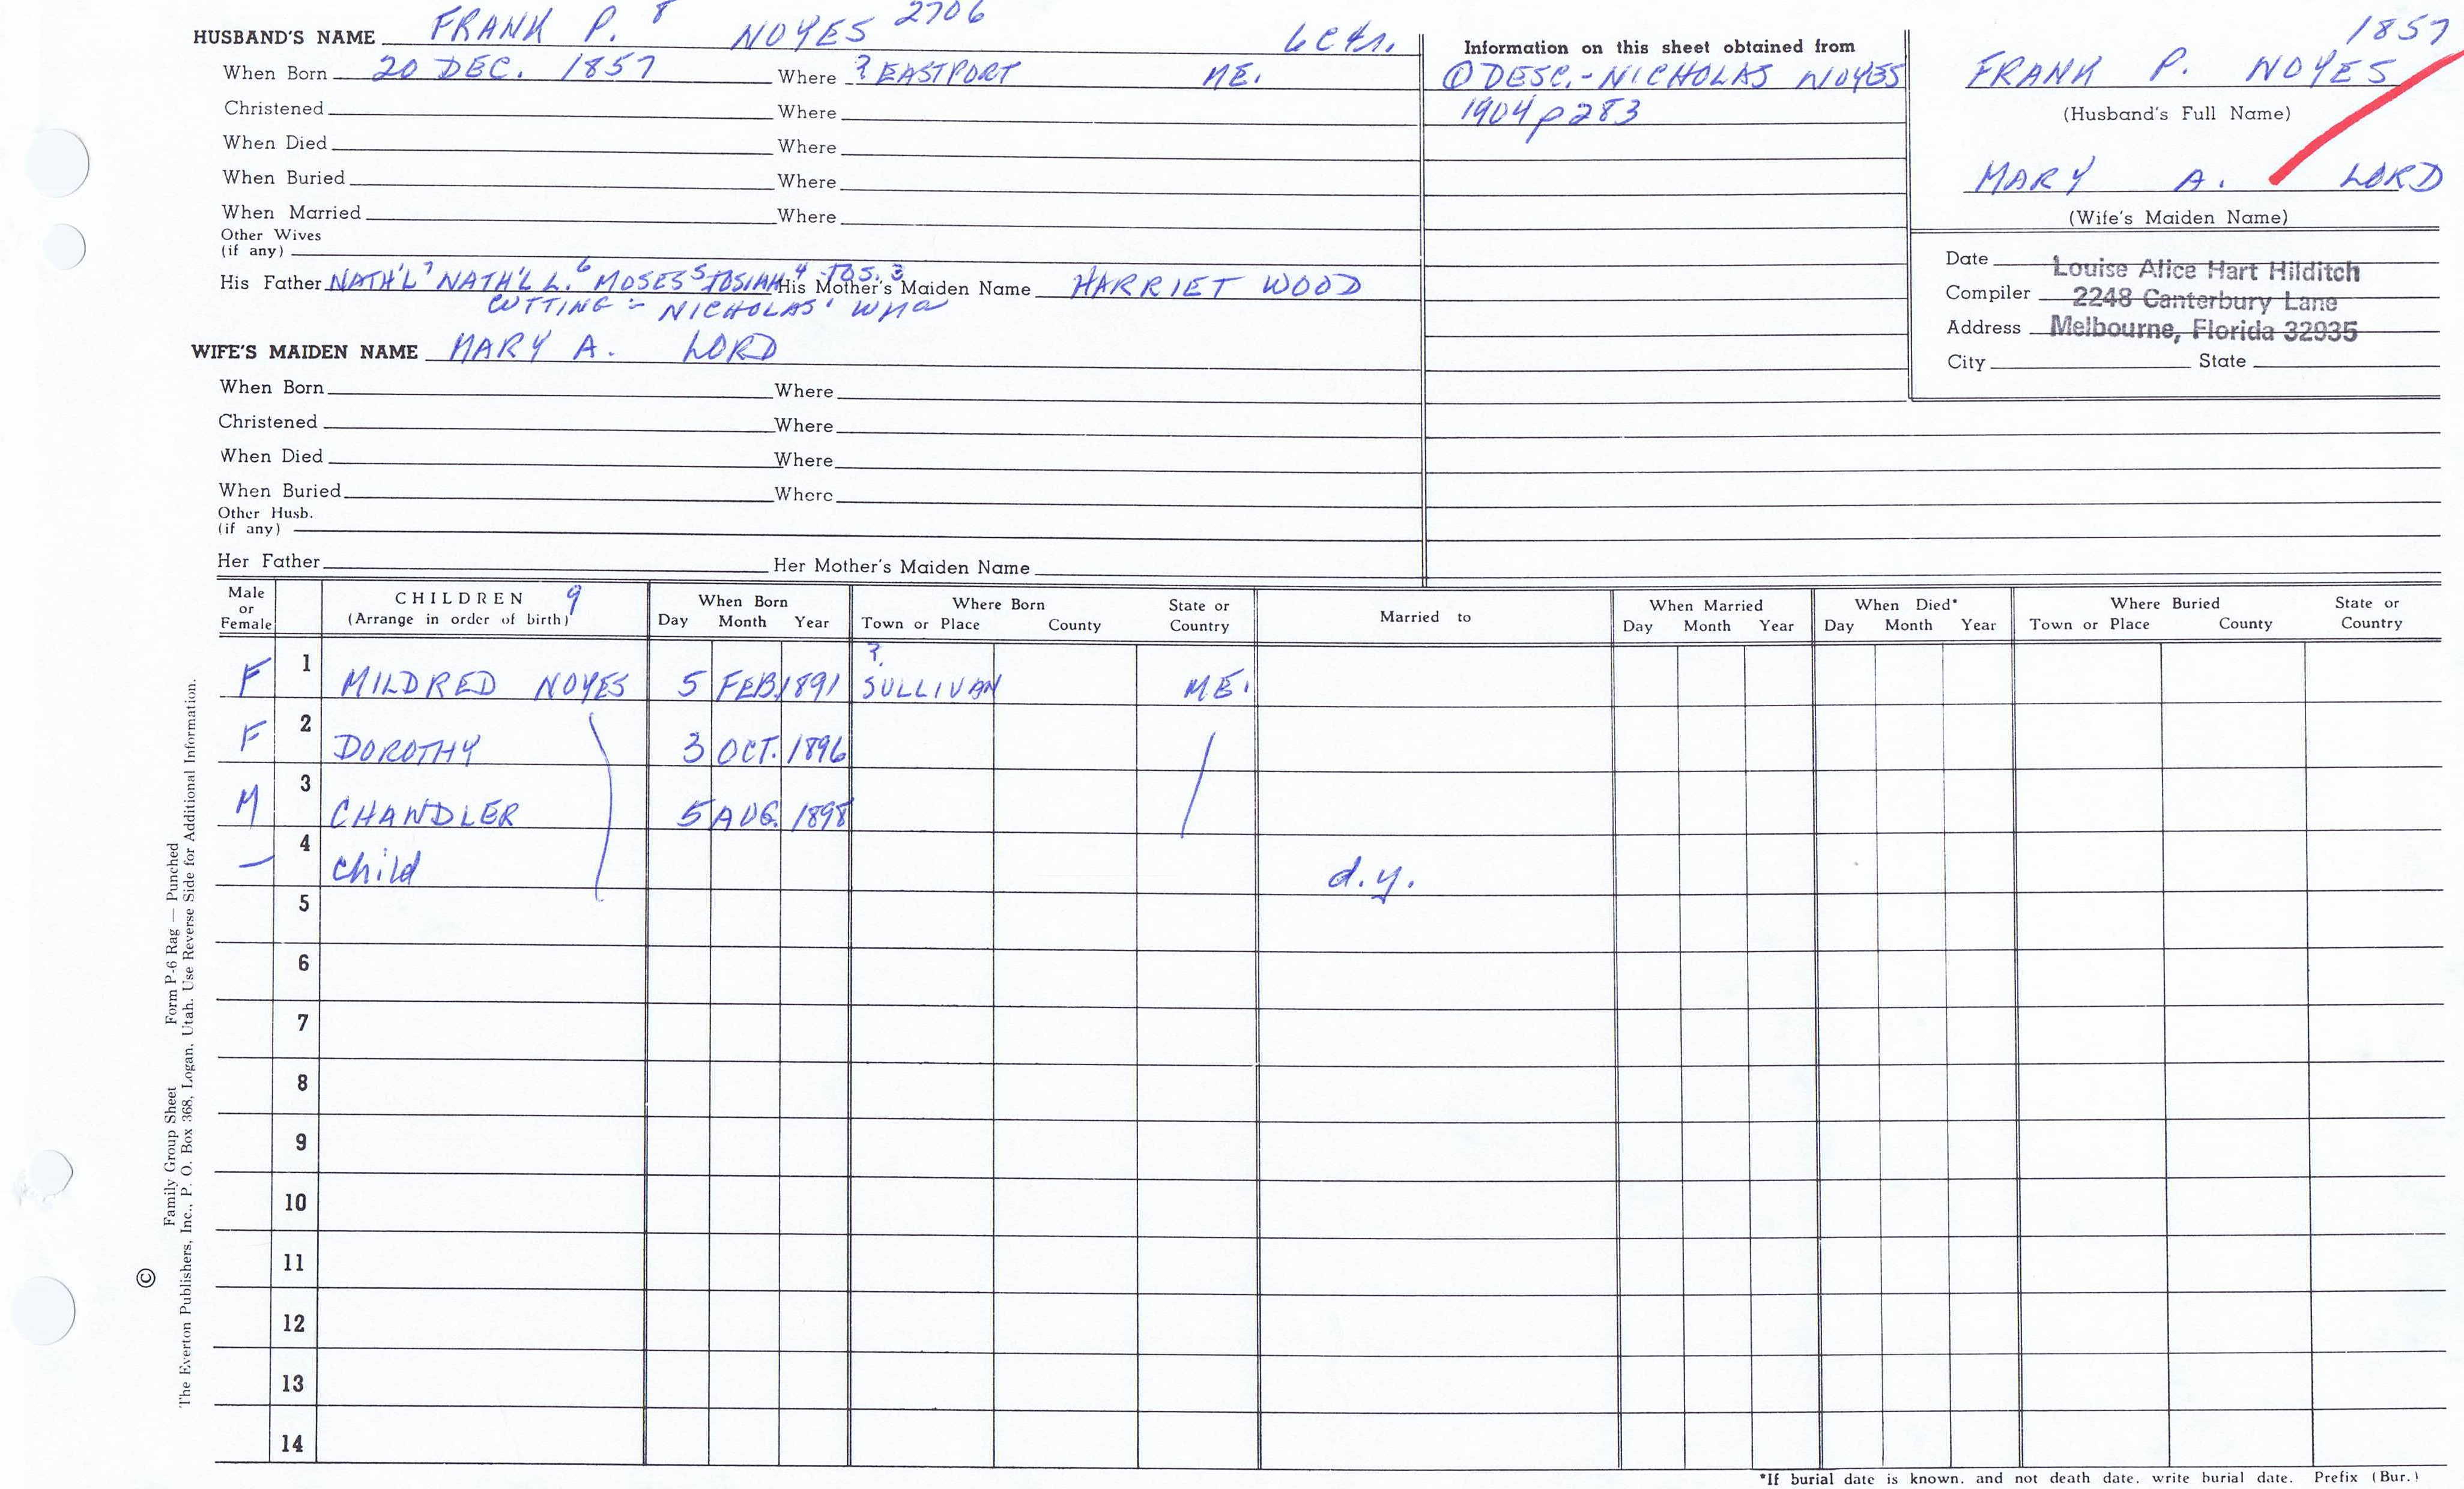 HUSBAND'S NAME FRANK P. 8 NOYES 2706
When Born 20 DEC. 1857 Where ? EASTPORT ME.
Christened Where
When Died Where
When Buried Where
When Married Where
Other Wives
(if any)
His Father NATH'L 7 NATH'L L. 6 MOSES 5 JOSIAH 4 JOS. 3 His Mother's Maiden Name HARRIET WOOD
CUTTING 2 NICHOLAS'
WIFE'S MAIDEN NAME MARY A. LORD
When Born Where
Christened Where
When Died Where
When Buried Where
Other Husb.
(if any)
Her Father Her Mother's Maiden Name
Information on this sheet obtained from
① DESC.- NICHOLAS NOYES
1904 p283
1857
FRANK P. NOYES
(Husband's Full Name)
MARY A. LORD
(Wife's Maiden Name)
Date Louise Alice Hart Hilditch
Compiler 2248 Canterbury Lane
Address Melbourne, Florida 32935
City State
Male or Female CHILDREN 9 (Arrange in order of birth) When Born Day Month Year Where Born Town or Place County State or Country Married to When Married Day Month Year When Died* Day Month Year Where Buried Town or Place County State or Country
F 1 MILDRED NOYES 5 FEB. 1891 ? SULLIVAN ME.
F 2 DOROTHY 3 OCT. 1896
M 3 CHANDLER 5 AUG. 1898
— 4 child d.y.
5
6
7
8
9
10
11
12
13
14
*If burial date is known, and not death date, write burial date. Prefix (Bur.)
© Family Group Sheet Form P-6 Rag — Punched
The Everton Publishers, Inc., P. O. Box 368, Logan, Utah. Use Reverse Side for Additional Information.